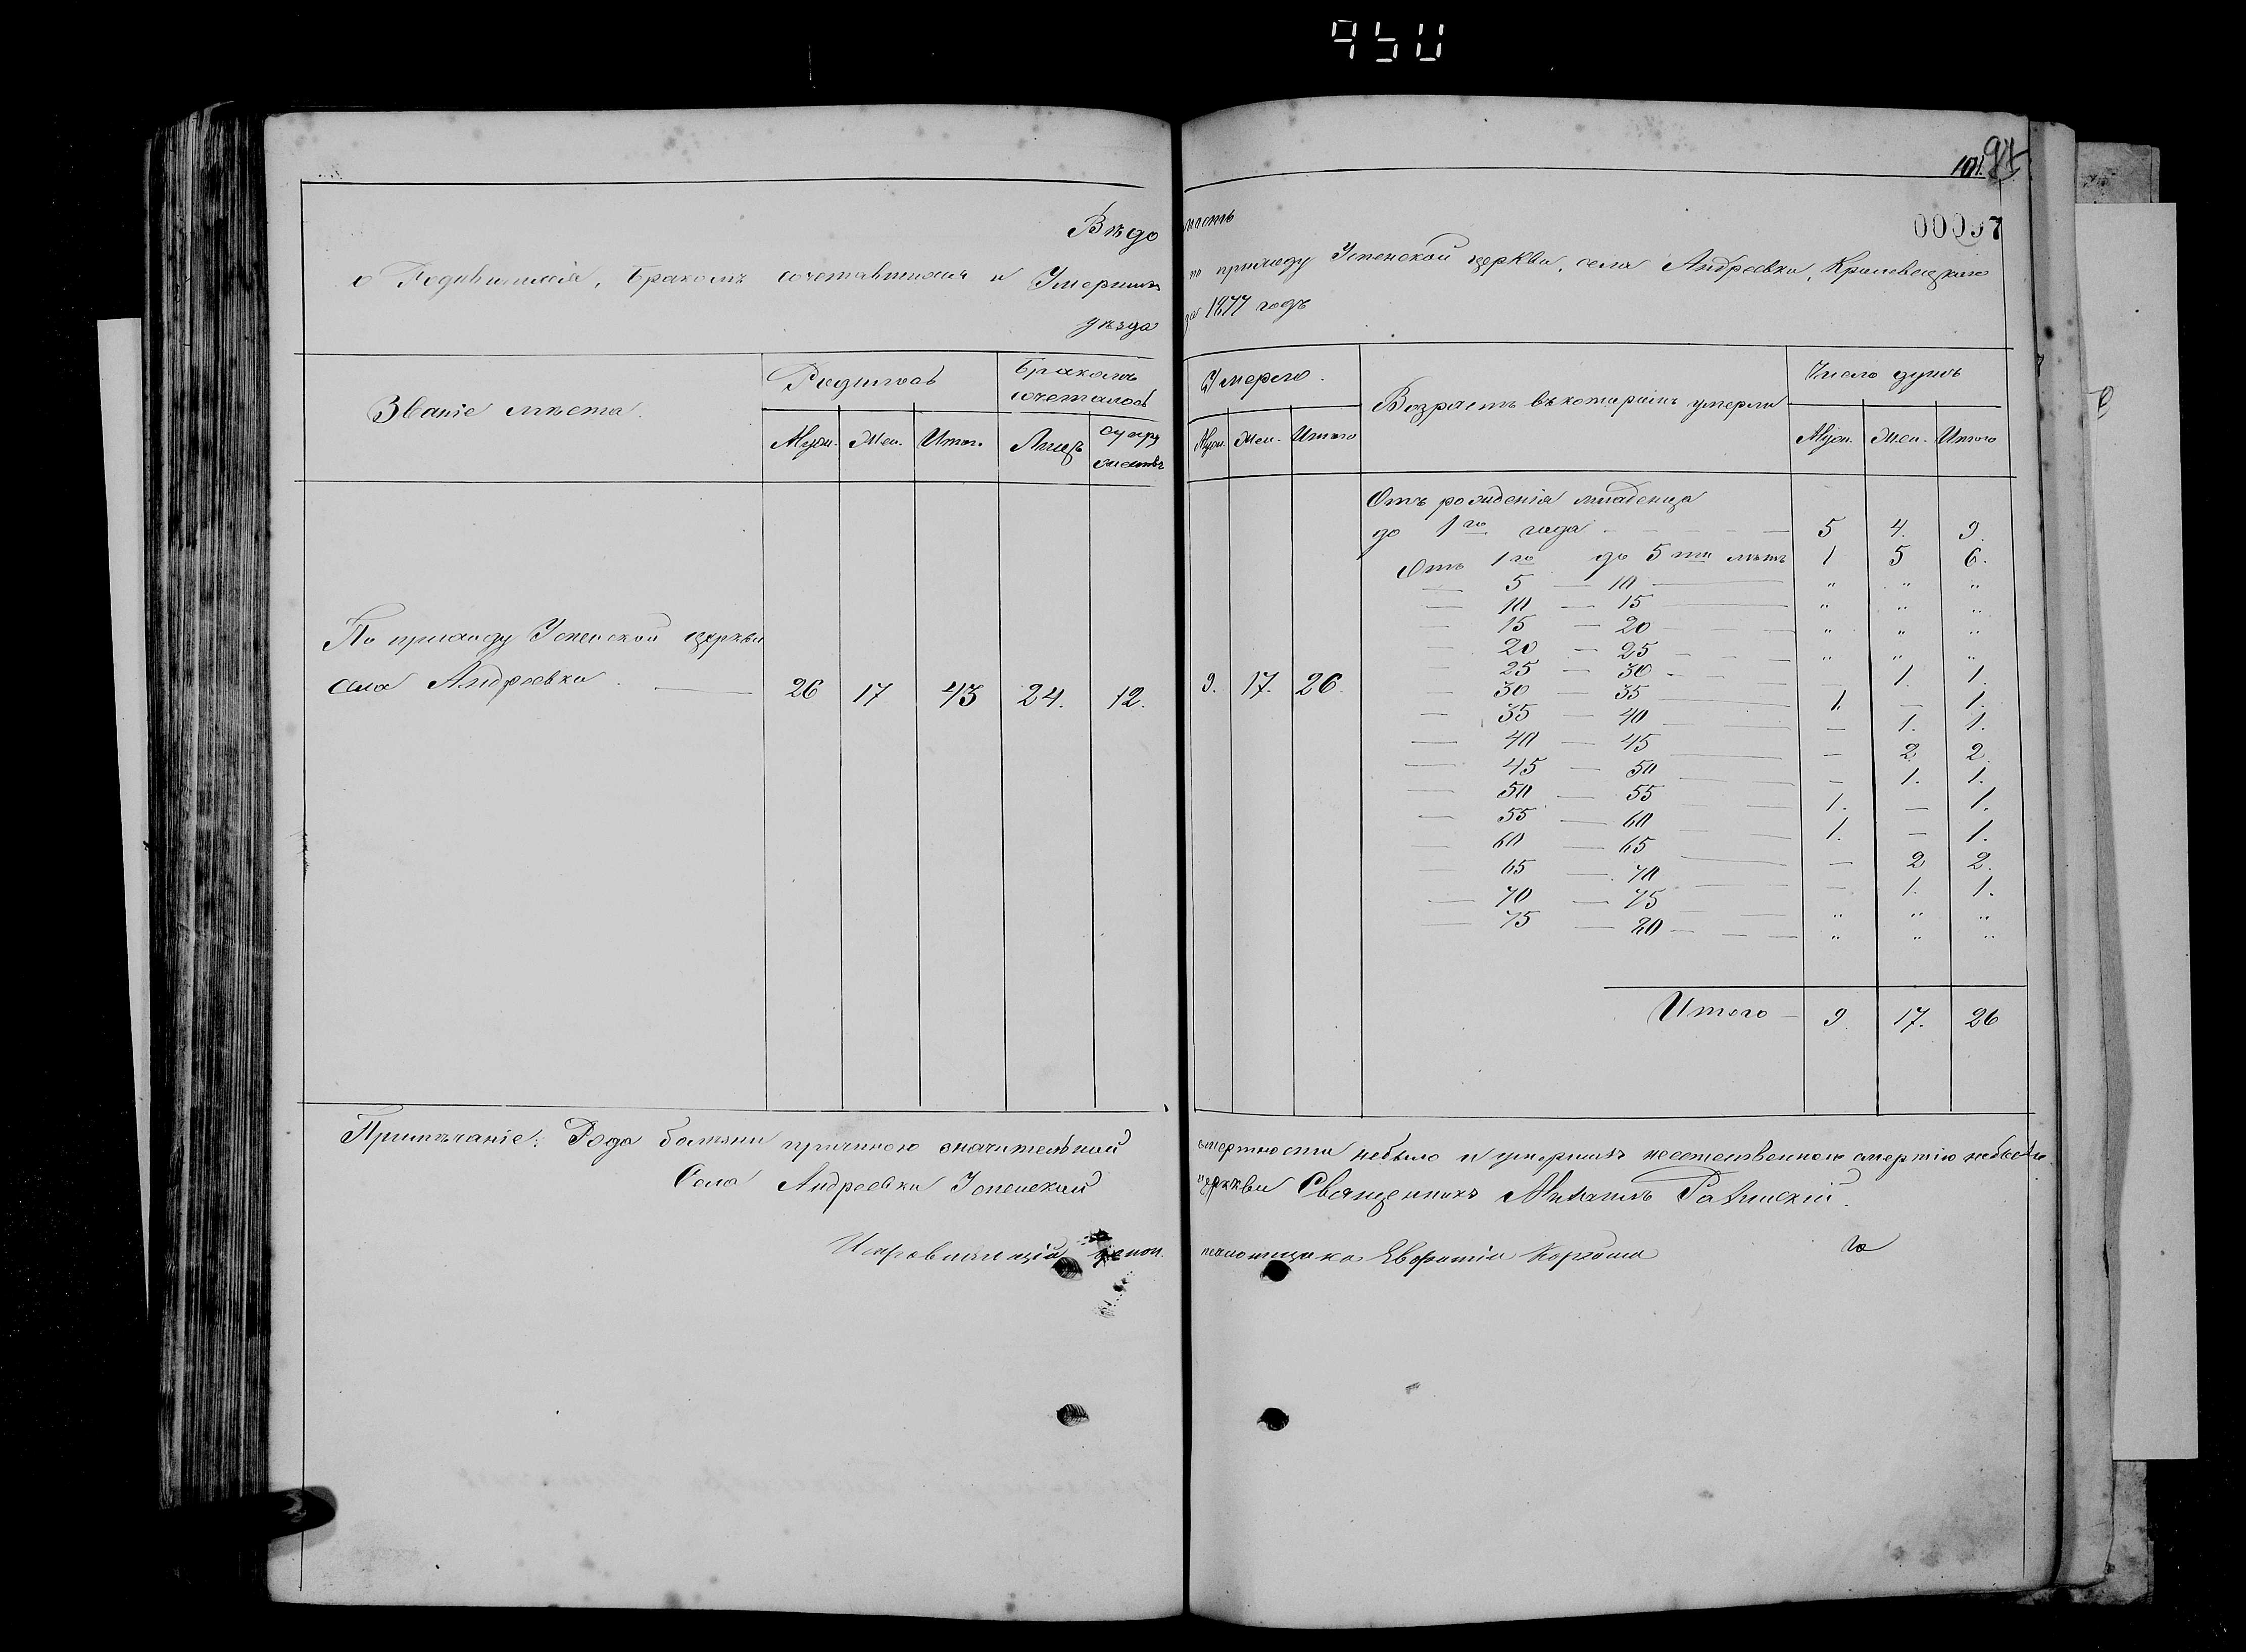 950
101. 97
00097
Вѣдомость
о Родившихся, Бракомъ сочетавшихся и Умершихъ по приходу Успенской церкви, села Андреевки, Кролевецкаго
уѣзда за 1877 годъ
Званіе мѣста. Родилось Бракомъ сочеталось Умерло. Возрастъ въ которыхъ умерли Число душъ
Муж. Жен. Итого Лицъ Супружествъ Муж. Жен. Итого Муж. Жен. Итого
По приходу Успенской церкви
села Андреевки. — 26 17 43 24. 12. 9. 17. 26.
Отъ рожденія младенца
до 1го года — 5 4. 9.
Отъ 1го до 5ти лѣтъ 1 5 6.
— 5 — 10 — " " "
— 10 — 15 — " " "
— 15 — 20 — " " "
— 20 — 25 — " " "
— 25 — 30 — — 1. 1.
— 30 — 35 — 1. — 1.
— 35 — 40 — — 1. 1.
— 40 — 45 — — 2 2.
— 45 — 50 — — 1. 1.
— 50 — 55 — 1. — 1.
— 55 — 60 — 1. — 1.
— 60 — 65 — — 2 2.
— 65 — 70 — — 1. 1.
— 70 — 75 — " " "
— 75 — 80 — " " "
Итого — 9 17. 26
Примѣчаніе: Рода болѣзни причиною значительной смертности небыло и умершихъ неестественною смертію небыло
Села Андреевки Успенской церкви Священникъ Михаилъ
псаломщика